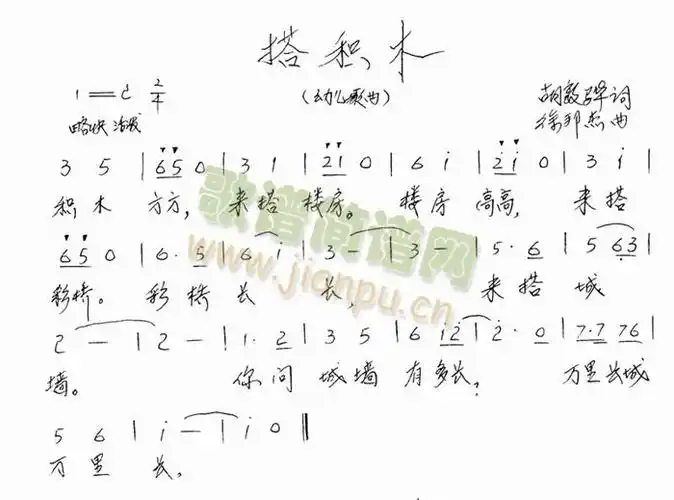 搭积木
(幼儿歌曲)
1=C 2/4
胡敦骅词
略快 活泼
徐邦杰曲
3 5 | 6 5 0 | 3 1 | 2 1 0 | 6 i | 2 i 0 | 3 i |
积木 方方, 来搭 楼房。 楼房 高高, 来搭
6 5 0 | 6· 5 | 6 i | 3 — | 3 — | 5· 6 | 5 6 3 |
彩桥。 彩桥 长 长, 来搭 城
2 — | 2 — | 1· 2 | 3 5 | 6 i 2 | 2· 0 | 7·7 7 6 |
墙。 你问 城墙 有多长? 万里长城
5 6 | i — | i 0 ‖
万里 长。
歌谱简谱网
www.jianpu.cn